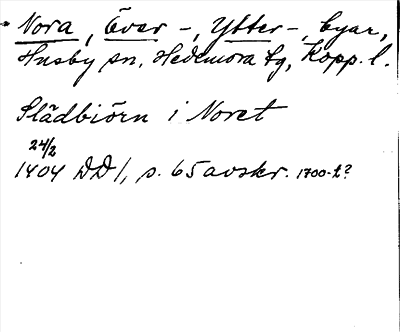 Nora, Över-, Ytter-, byar,
Husby sn, Hedemora tg, Kopp. l.
Slädbiörn i Noret
24/2
1404 DD 1, s. 65 avskr. 1700-t?